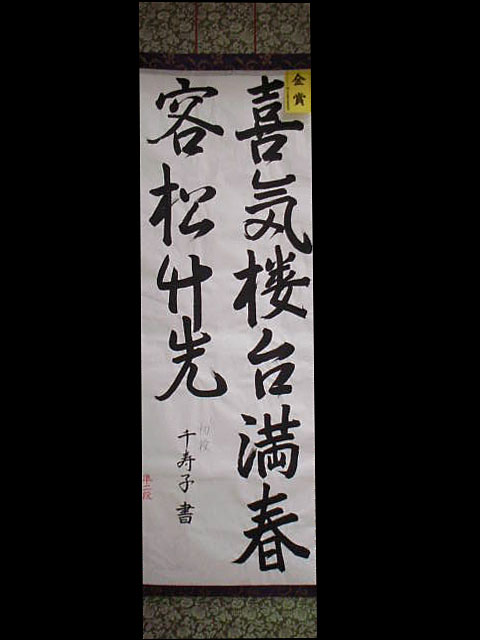 金賞
喜気楼台満春
容松竹先
初段
千寿子書
準二段